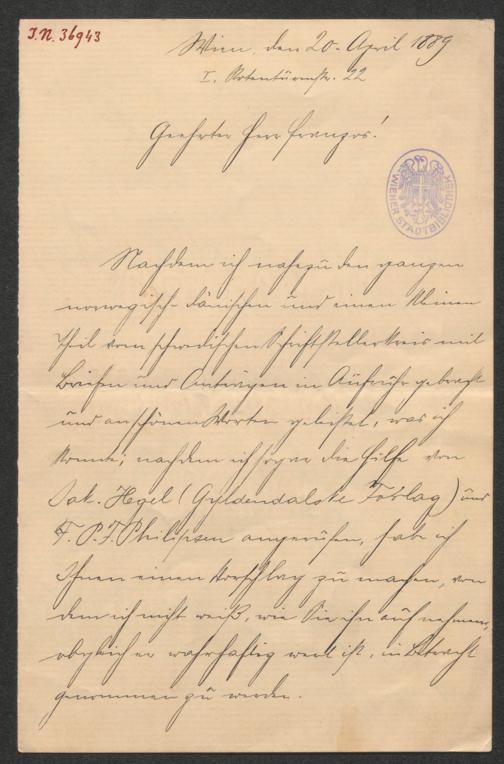 J.N. 36943
Wien, den 20. April 1889
I. Rotenturmstr. 22
Geehrter Herr Franzos!
WIENER STADTBIBLIOTHEK
Nachdem ich nahezu den ganzen
norwegisch-dänischen und einen kleinen
Theil vom schwedischen Schriftstellerkreis mit
Briefen und Anträgen in Aufruhr gebracht
und an schönen Worten geleistet, was ich
konnte; nachdem ich sogar die Hilfe von
Jak. Hegel (Gyldendalske Forlag) und
F. P. J. Philipsen angerufen, habe ich
Ihnen einen Vorschlag zu machen, von
dem ich nicht weiß, wie Sie ihn aufnehmen,
obgleich er wahrhaftig wert ist, in Betracht
genommen zu werden.